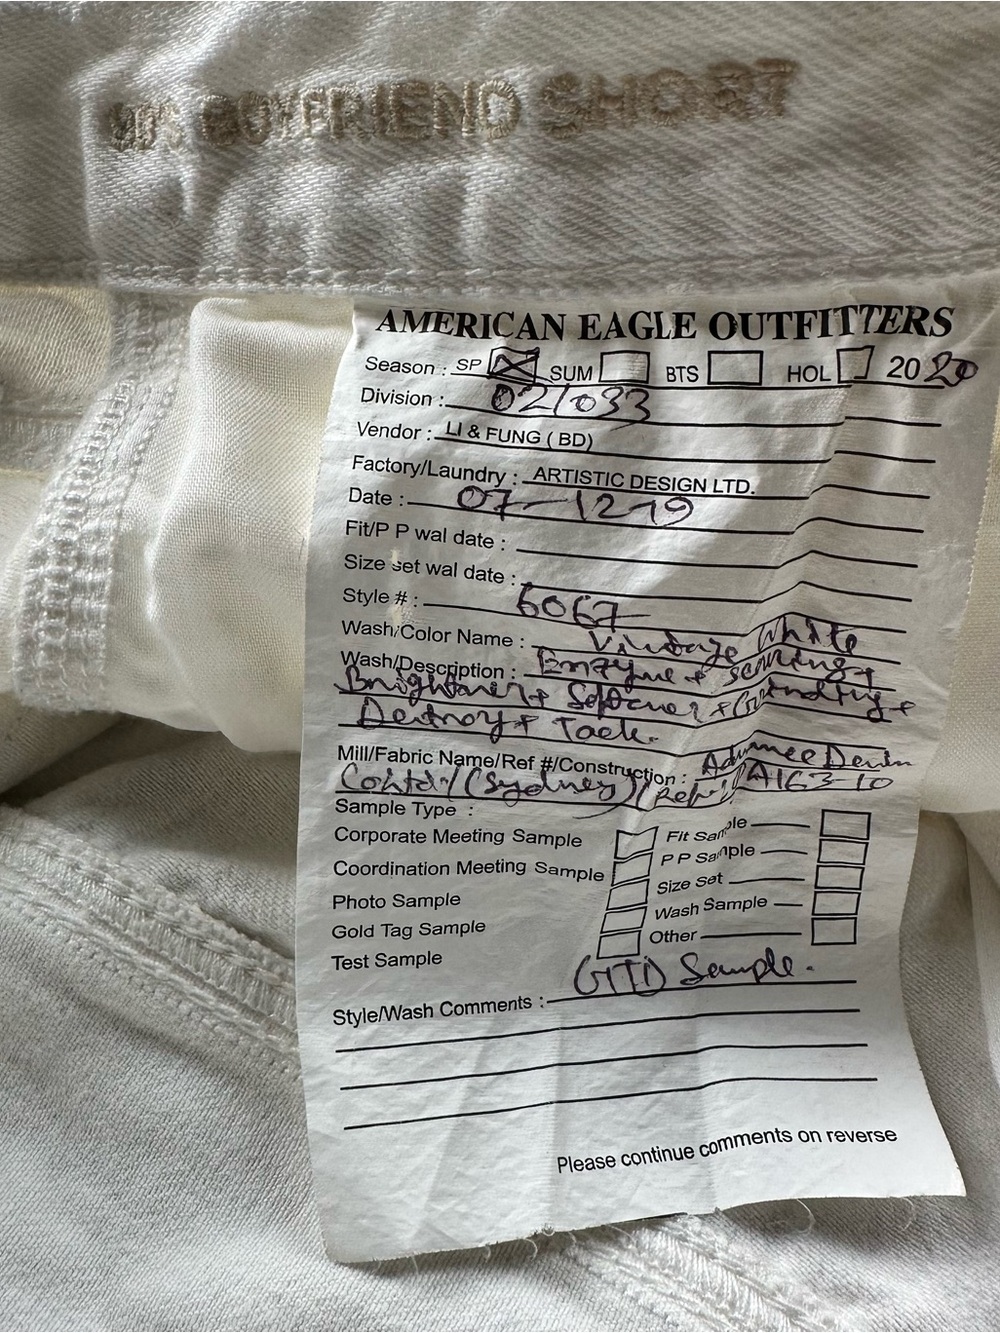 90's BOYFRIEND SHORT
AMERICAN EAGLE OUTFITTERS
Season : SP SUM BTS HOL 2020
Division : 021033
Vendor : LI & FUNG ( BD)
Factory/Laundry : ARTISTIC DESIGN LTD.
Date : 07-12-19
Fit/P P wal date :
Size set wal date :
Style # : 6067
Wash/Color Name : Vintage White
Wash/Description : Enzyme + scouring +
Brightner + Softner + Grinding +
Destroy + Tack.
Mill/Fabric Name/Ref #/Construction : Advance Denim
(Sydney) / Ref: A163-10
Sample Type :
Corporate Meeting Sample Fit Sample
Coordination Meeting Sample P P Sample
Photo Sample Size Set
Gold Tag Sample Wash Sample
Test Sample Other
GTD Sample.
Style/Wash Comments :
Please continue comments on reverse